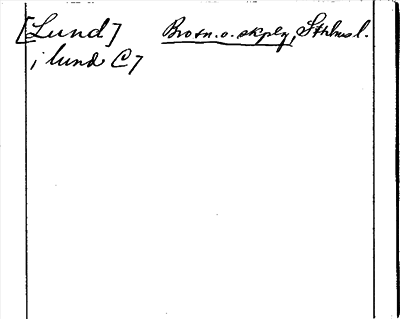 [Lund] Bro sn. o. skplg, Sthlms l.
i lund C7